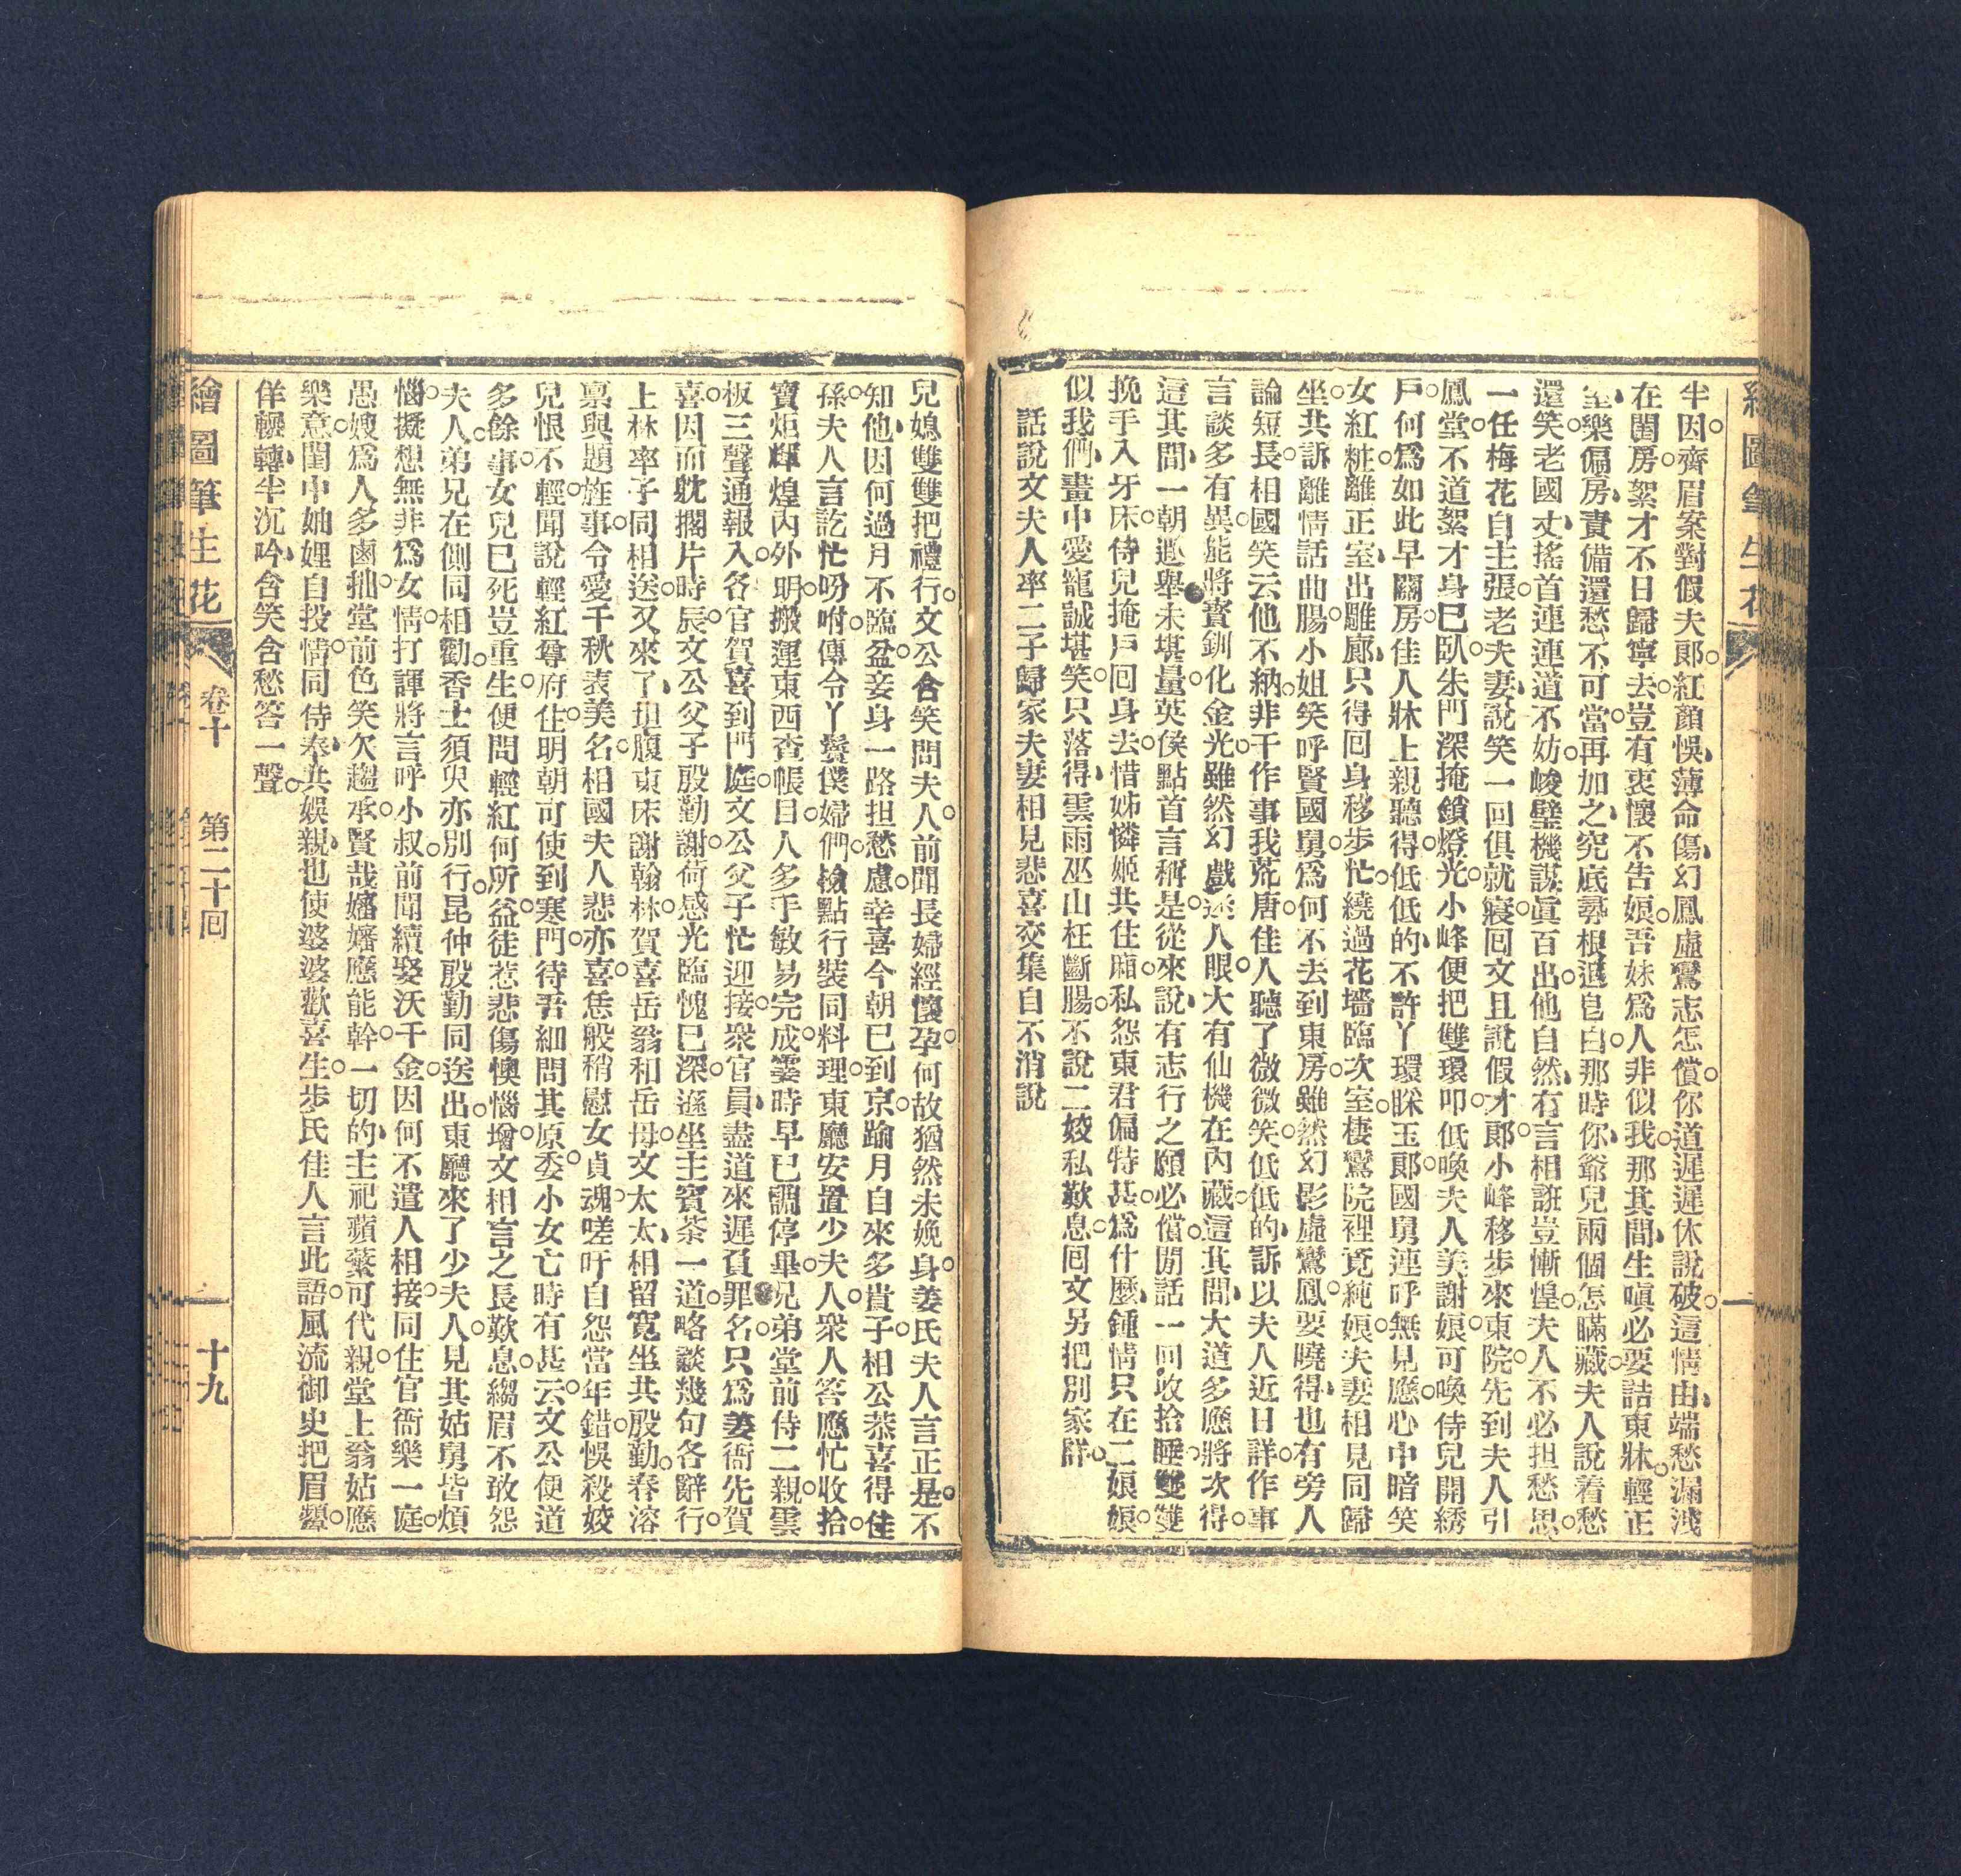 繪圖筆生花
半因○齊眉案對假夫郞○紅顏悞、薄命傷、幻鳳虛鸞志怎償○你道遲遲休說破○這情由、端愁漏淺
在閨房○絮才不日歸寧去○豈有衷懷不告娘○吾妹爲人非似我○那其間、生嗔必要詰東牀○輕正
室、樂偏房、責備還愁不可當○再加之、究底尋根追皂白○那時你、爺兒兩個怎瞞藏○夫人說着愁
還笑○老國丈、搖首連連道不妨○峻壁機謀眞百出○他自然、有言相誑豈慚惶○夫人不必担愁思○
一任梅花自主張○老夫妻、說笑一回俱就寢○囘文且說假才郞○小峰移步來東院○先到夫人引
鳳堂○不道絮才身已臥○朱門深掩鎖燈光○小峰便把雙環叩○低喚夫人美謝娘○可喚侍兒開綉
戶○何爲如此早關房○佳人牀上親聽得○低低的、不許丫環睬玉郞○國舅連呼無見應○心中暗笑
女紅粧○離正室、出雕廊、只得囘身移步忙○繞過花墻臨次室○棲鸞院裡覓純娘○夫妻相見同歸
坐○共訴離情話曲腸○小姐笑呼賢國舅○爲何不去到東房○雖然幻影虛鸞鳳○要曉得、也有旁人
論短長○相國笑云他不納○非干作事我荒唐○佳人聽了微微笑○低低的、訴以夫人近日詳○作事
言談多有異○能將寳釧化金光○雖然幻戲迷人眼○大有仙機在內藏○這其間、大道多應將次得○
這其間、一朝遐舉未堪量○英侯點首言稱是○從來說、有志行之願必償○閒話一回收拾睡○雙雙
挽手入牙床○侍兒掩戶囘身去○惜姊憐姬共住廂○私怨東君偏特甚○爲什麼、鍾情只在二娘娘○
似我們、畫中愛寵誠堪笑○只落得、雲雨巫山枉斷腸○不說二姣私歎息○囘文另把別家詳○
話說文夫人率二子歸家夫妻相見悲喜交集自不消說
兒媳雙雙把禮行○文公含笑問夫人○前聞長婦經懷孕○何故猶然未娩身○姜氏夫人言正是○不
知他、因何過月不臨盆○妾身一路担愁慮○幸喜今朝已到京○踰月自來多貴子○相公恭喜得佳
孫○夫人言訖忙吩咐○傳令丫鬟僕婦們○檢點行裝同料理○東廳安置少夫人○衆人答應忙收拾○
寳炬輝煌內外明○搬運東西查帳目○人多手敏易完成○霎時早已調停畢○兄弟堂前侍二親○雲
板三聲通報入○各官賀喜到門庭○文公父子忙迎接○衆官員、盡道來遲負罪名○只爲姜衙先賀
喜○因而躭擱片時辰○文公父子殷勤謝○荷感光臨愧已深○遜坐主賓茶一道○略談幾句各辭行○
上林率子同相送○又來了、坦腹東床謝翰林○賀喜岳翁和岳母○文太太、相留寬坐共殷勤○春溶
稟與題旌事○令愛千秋表美名○相國夫人悲亦喜○恁般稍慰女貞魂○嗟吁自怨當年錯○悞殺姣
兒恨不輕○聞說輕紅尊府住○明朝可使到寒門○待吾細問其原委○小女亡時有甚云○文公便道
多餘事○女兒已死豈重生○便問輕紅何所益○徒惹悲傷懊惱增○文相言之長歎息○縐眉不敢怨
夫人○弟兄在側同相勸○香士須臾亦別行○昆仲殷勤同送出○東廳來了少夫人○見其姑舅皆煩
惱○擬想無非爲女情○打諢將言呼小叔○前聞續娶沃千金○因何不遣人相接○同住官衙樂一庭○
愚嫂爲人多鹵拙○堂前色笑欠趨承○賢哉嬸嬸應能幹○一切的、主祀蘋蘩可代親○堂上翁姑應
樂意○閨中妯娌自投情○同侍奉、共娛親、也使婆婆歡喜生○步氏佳人言此語○風流御史把眉顰○
佯輾轉、半沉吟、含笑含愁答一聲○
繪圖筆生花　卷十　第二十囘　十九